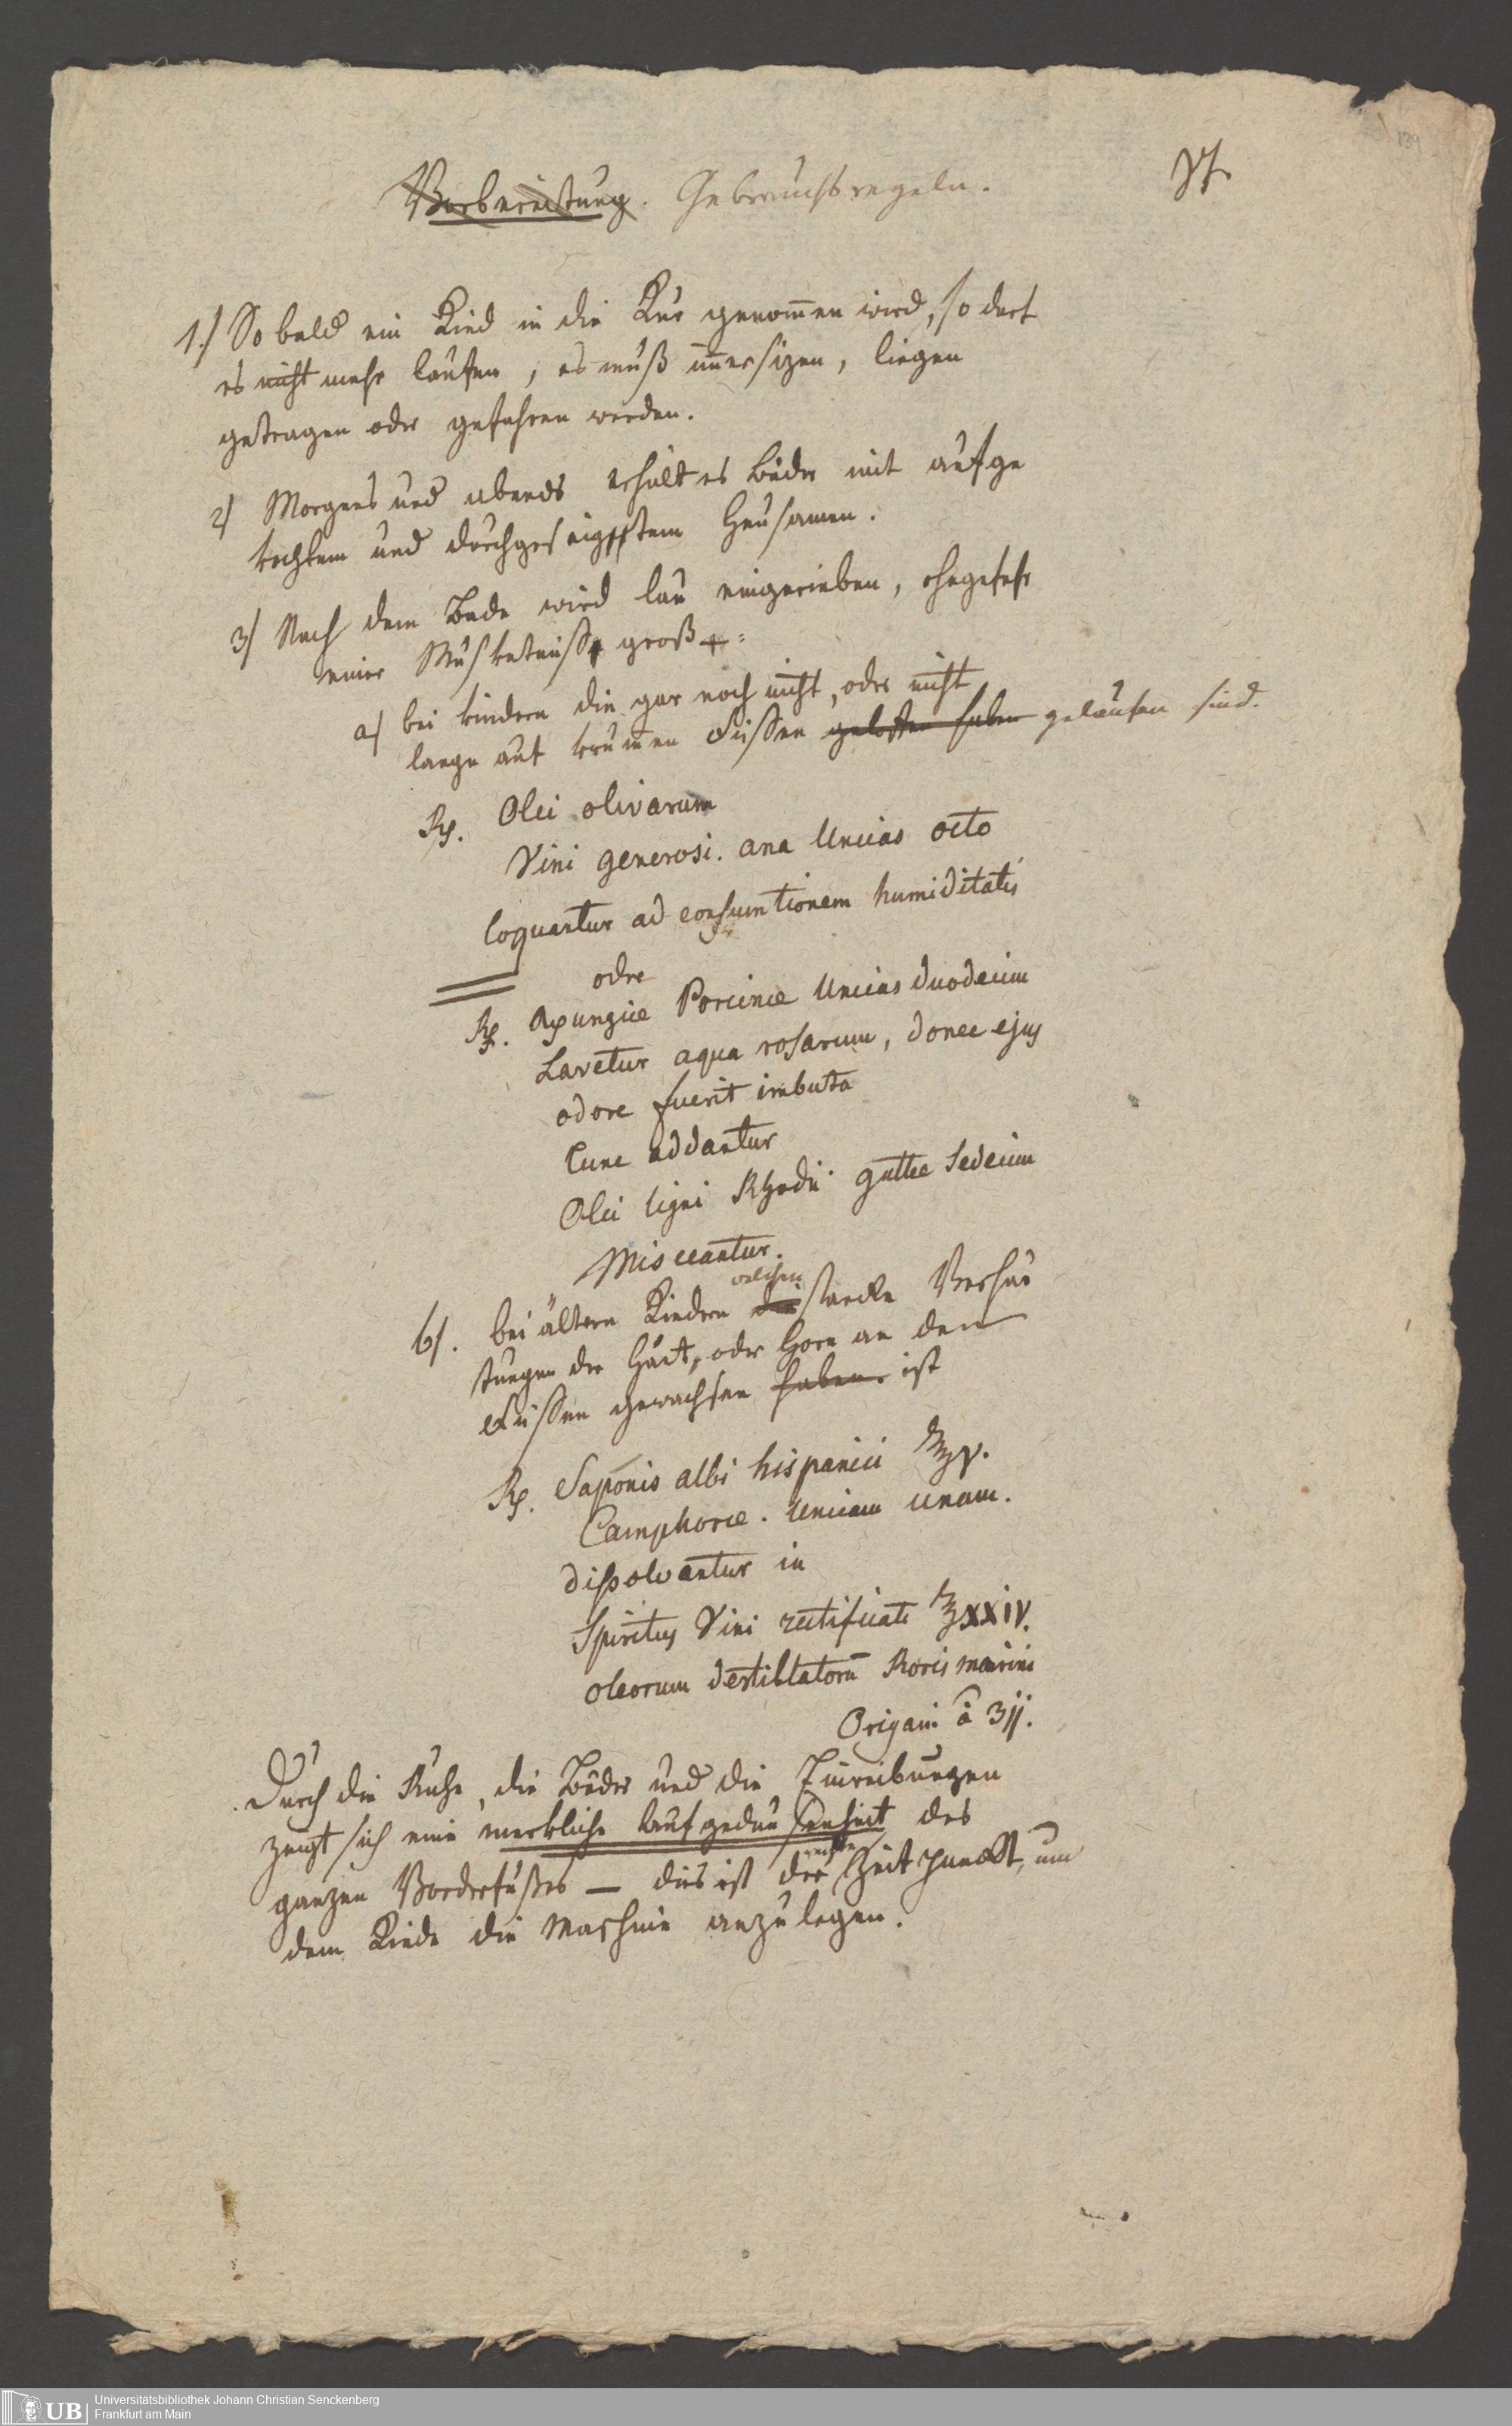 139
Vorbereitung. Gebrauchsregeln.
1.) So bald ein Kind in die Kur genom̅en wird, so darf
es nicht mehr laufen, es muß im̅er sizen, liegen
getragen oder gefahren werden.
2) Morgens und abends erhält es Bäder mit aufge
kochtem und durchgeseigtem Heusamen.
3) Nach dem Bade wird lau eingerieben, ohngefehr
einer Muskatnuss groß:
a) bei kindern die gar noch nicht, oder nicht
lange auf krum̅en Füssen geloffen haben gelaufen sind.
Rp. Olei olivarum
Vini generosi. ana Uncias octo
Coquantur ad consumtionem humiditatis
oder
Rp. Axungiæ Porcinæ Uncias duodecim
Lavetur aqua rosarum, donec ejus
odore fuerit imbuta
Tunc addantur
Olei ligni Rhodii guttæ sedecim
Misceantur.
b). bei ältern Kindern die welchen starke Verhär
tungen der Haut, oder Horn an den
Füssen gewachsen haben. ist
Rp. Saponis albi hispanici ℥v.
Camphoræ. Unciam unam.
dissolvantur in
Spiritus Vini rectificati ℥xxiv.
oleorum destillatoru̅ Roris marini
Origani â ʒjj.
Durch die Ruhe, die Bäder und die Einreibungen
zeigt sich eine merkliche Aufgedunsenheit des
ganzen Vorderfußes — dies ist der rechte Zeitpunckt, um
dem Kinde die Maschine anzulegen.
UB
Universitätsbibliothek Johann Christian Senckenberg
Frankfurt am Main